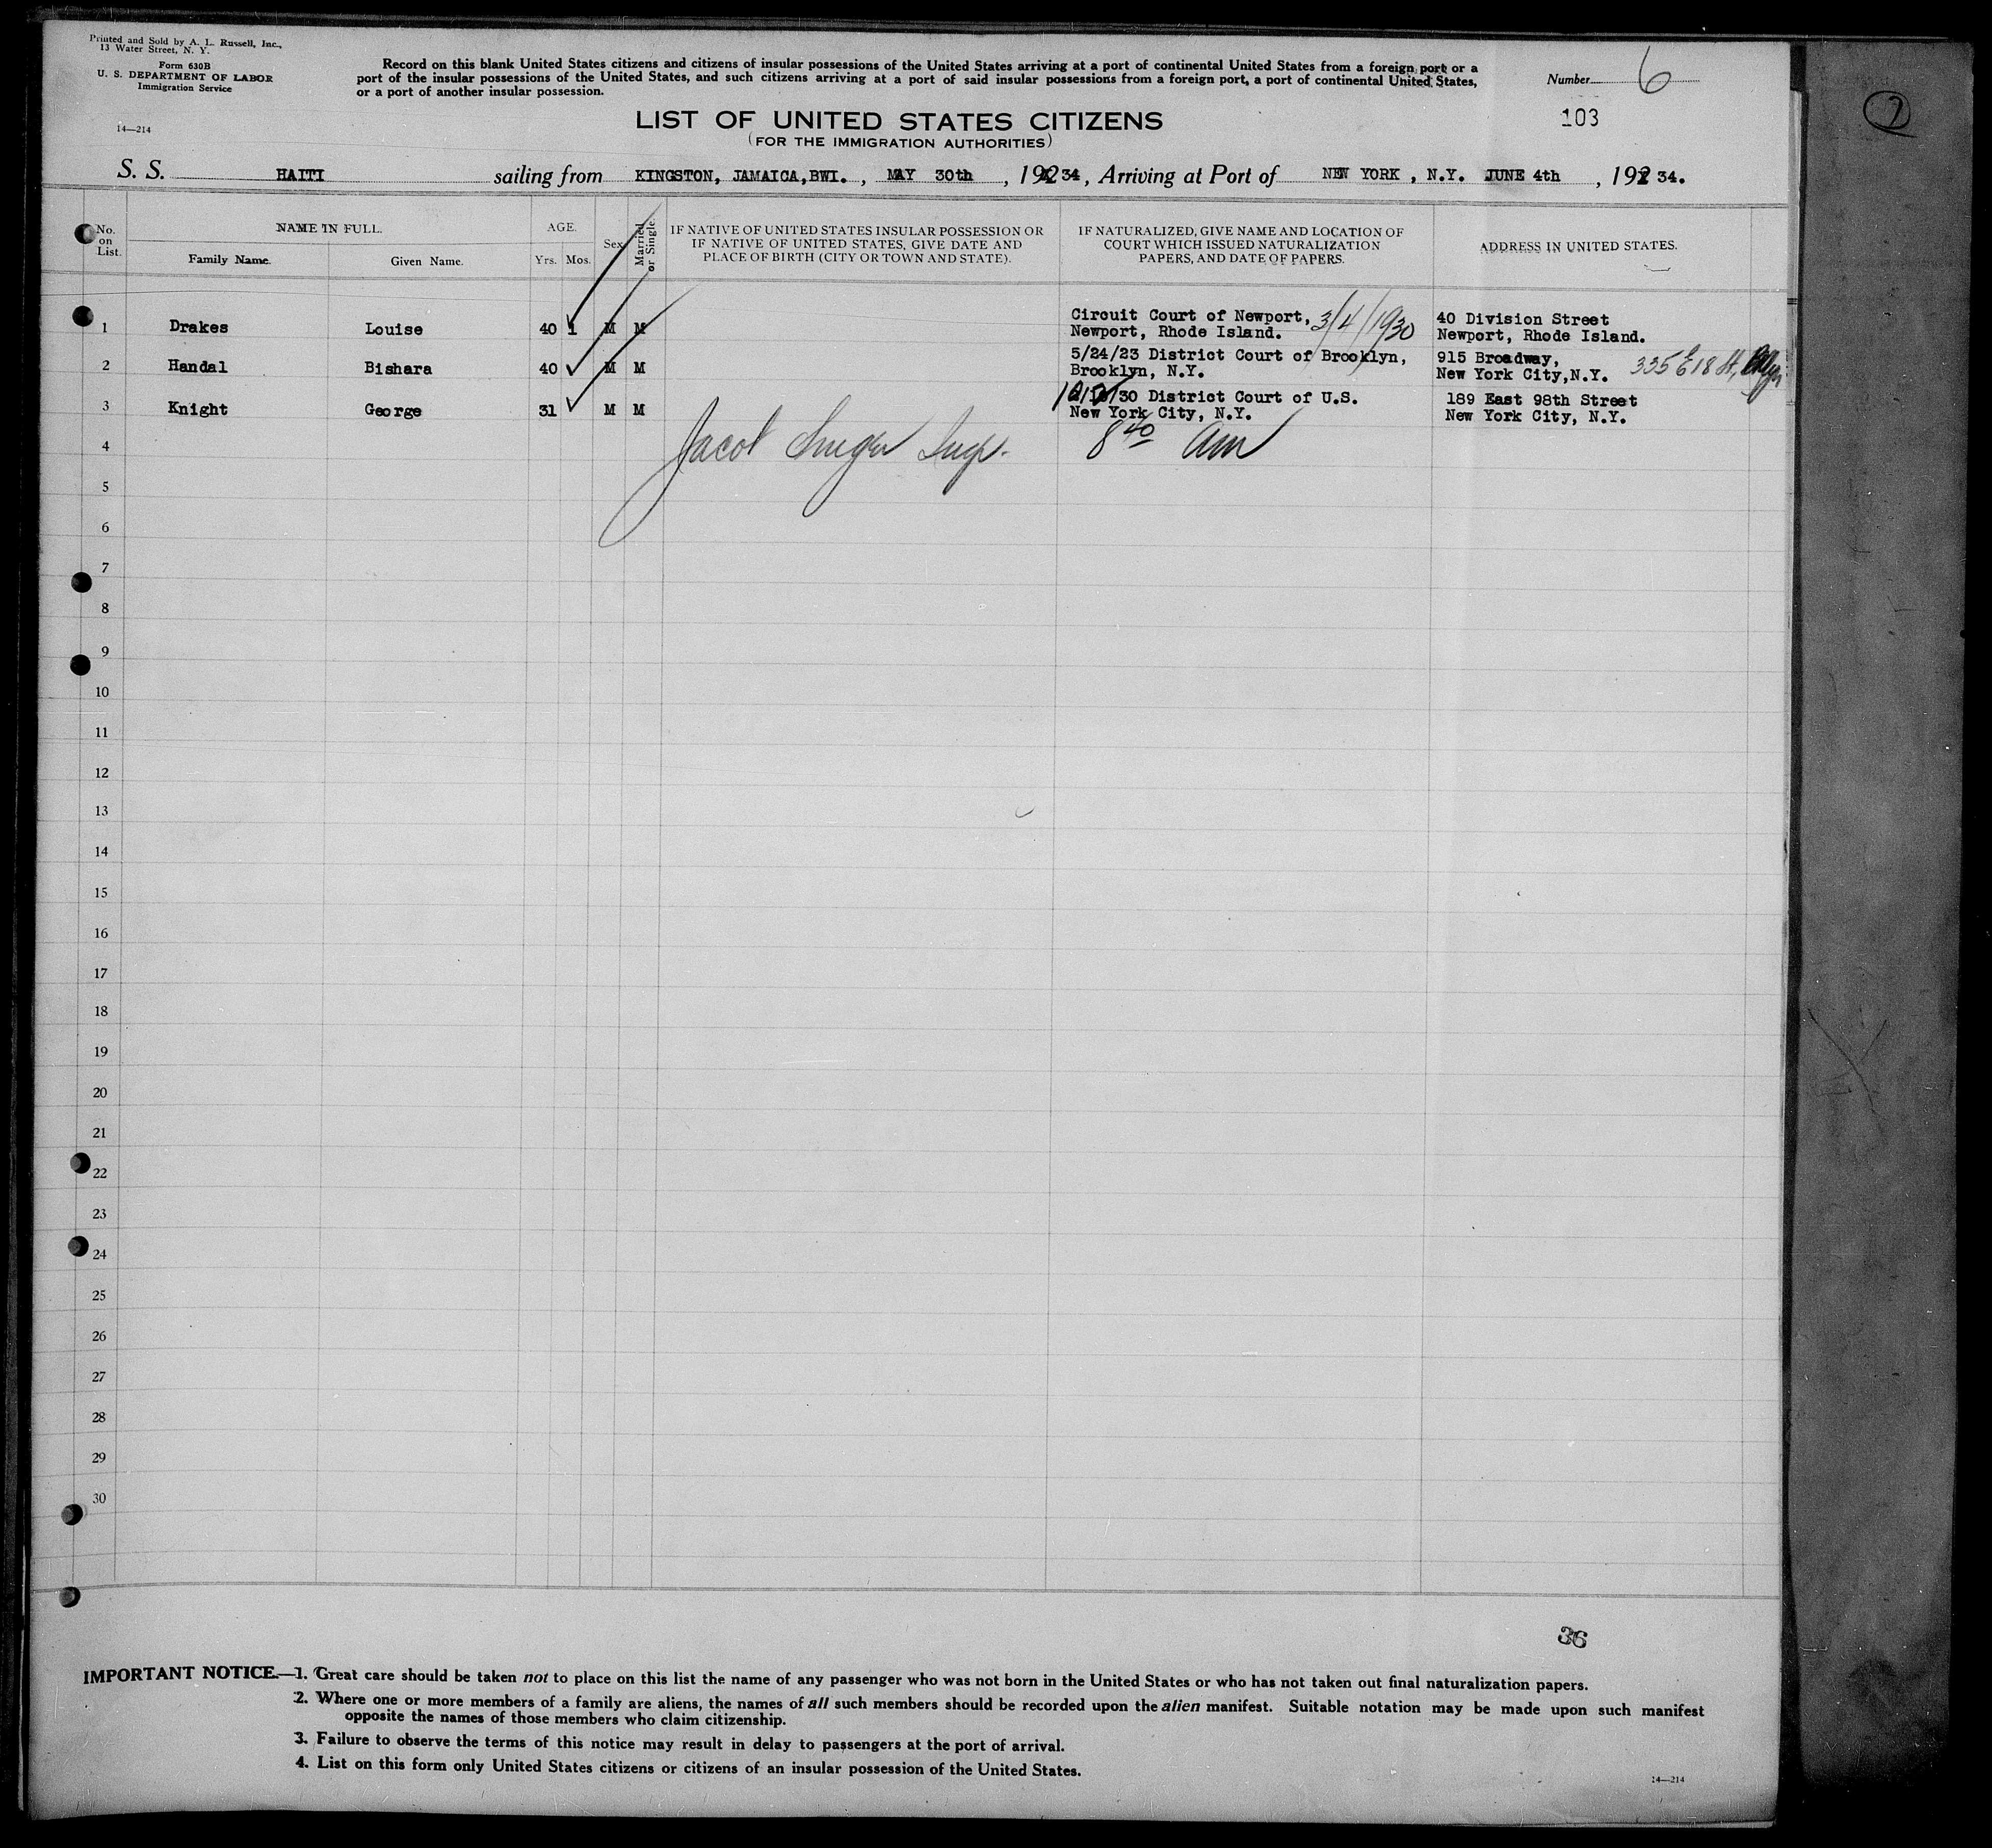 Printed and Sold by A. L. Russell, Inc.,
13 Water Street, N. Y.
Form 630B
U. S. DEPARTMENT OF LABOR
Immigration Service
14—214
Record on this blank United States citizens and citizens of insular possessions of the United States arriving at a port of continental United States from a foreign port or a
port of the insular possessions of the United States, and such citizens arriving at a port of said insular possessions from a foreign port, a port of continental United States,
or a port of another insular possession.
Number 6
103
LIST OF UNITED STATES CITIZENS
(FOR THE IMMIGRATION AUTHORITIES)
S. S. HAITI sailing from KINGSTON, JAMAICA,BWI. , MAY 30th , 192 34 , Arriving at Port of NEW YORK , N.Y. JUNE 4th , 192 34.
No. on List.
NAME IN FULL.
Family Name. Given Name.
AGE.
Yrs. Mos.
Sex
Married or Single.
IF NATIVE OF UNITED STATES INSULAR POSSESSION OR
IF NATIVE OF UNITED STATES, GIVE DATE AND
PLACE OF BIRTH (CITY OR TOWN AND STATE).
IF NATURALIZED, GIVE NAME AND LOCATION OF
COURT WHICH ISSUED NATURALIZATION
PAPERS, AND DATE OF PAPERS.
ADDRESS IN UNITED STATES.
1 Drakes Louise 40 1 M M Circuit Court of Newport, 3/4/1930 40 Division Street
Newport, Rhode Island. Newport, Rhode Island.
2 Handal Bishara 40 M M 5/24/23 District Court of Brooklyn, 915 Broadway,
Brooklyn, N.Y. New York City,N.Y. 335 E 18 St,
3 Knight George 31 M M /30 District Court of U.S. 189 East 98th Street
New York City, N.Y. New York City, N.Y.
4 Jacob Insp. 8 40 am
5
6
7
8
9
10
11
12
13
14
15
16
17
18
19
20
21
22
23
24
25
26
27
28
29
30
36
IMPORTANT NOTICE.—1. Great care should be taken not to place on this list the name of any passenger who was not born in the United States or who has not taken out final naturalization papers.
2. Where one or more members of a family are aliens, the names of all such members should be recorded upon the alien manifest. Suitable notation may be made upon such manifest
opposite the names of those members who claim citizenship.
3. Failure to observe the terms of this notice may result in delay to passengers at the port of arrival.
4. List on this form only United States citizens or citizens of an insular possession of the United States.
14—214
7